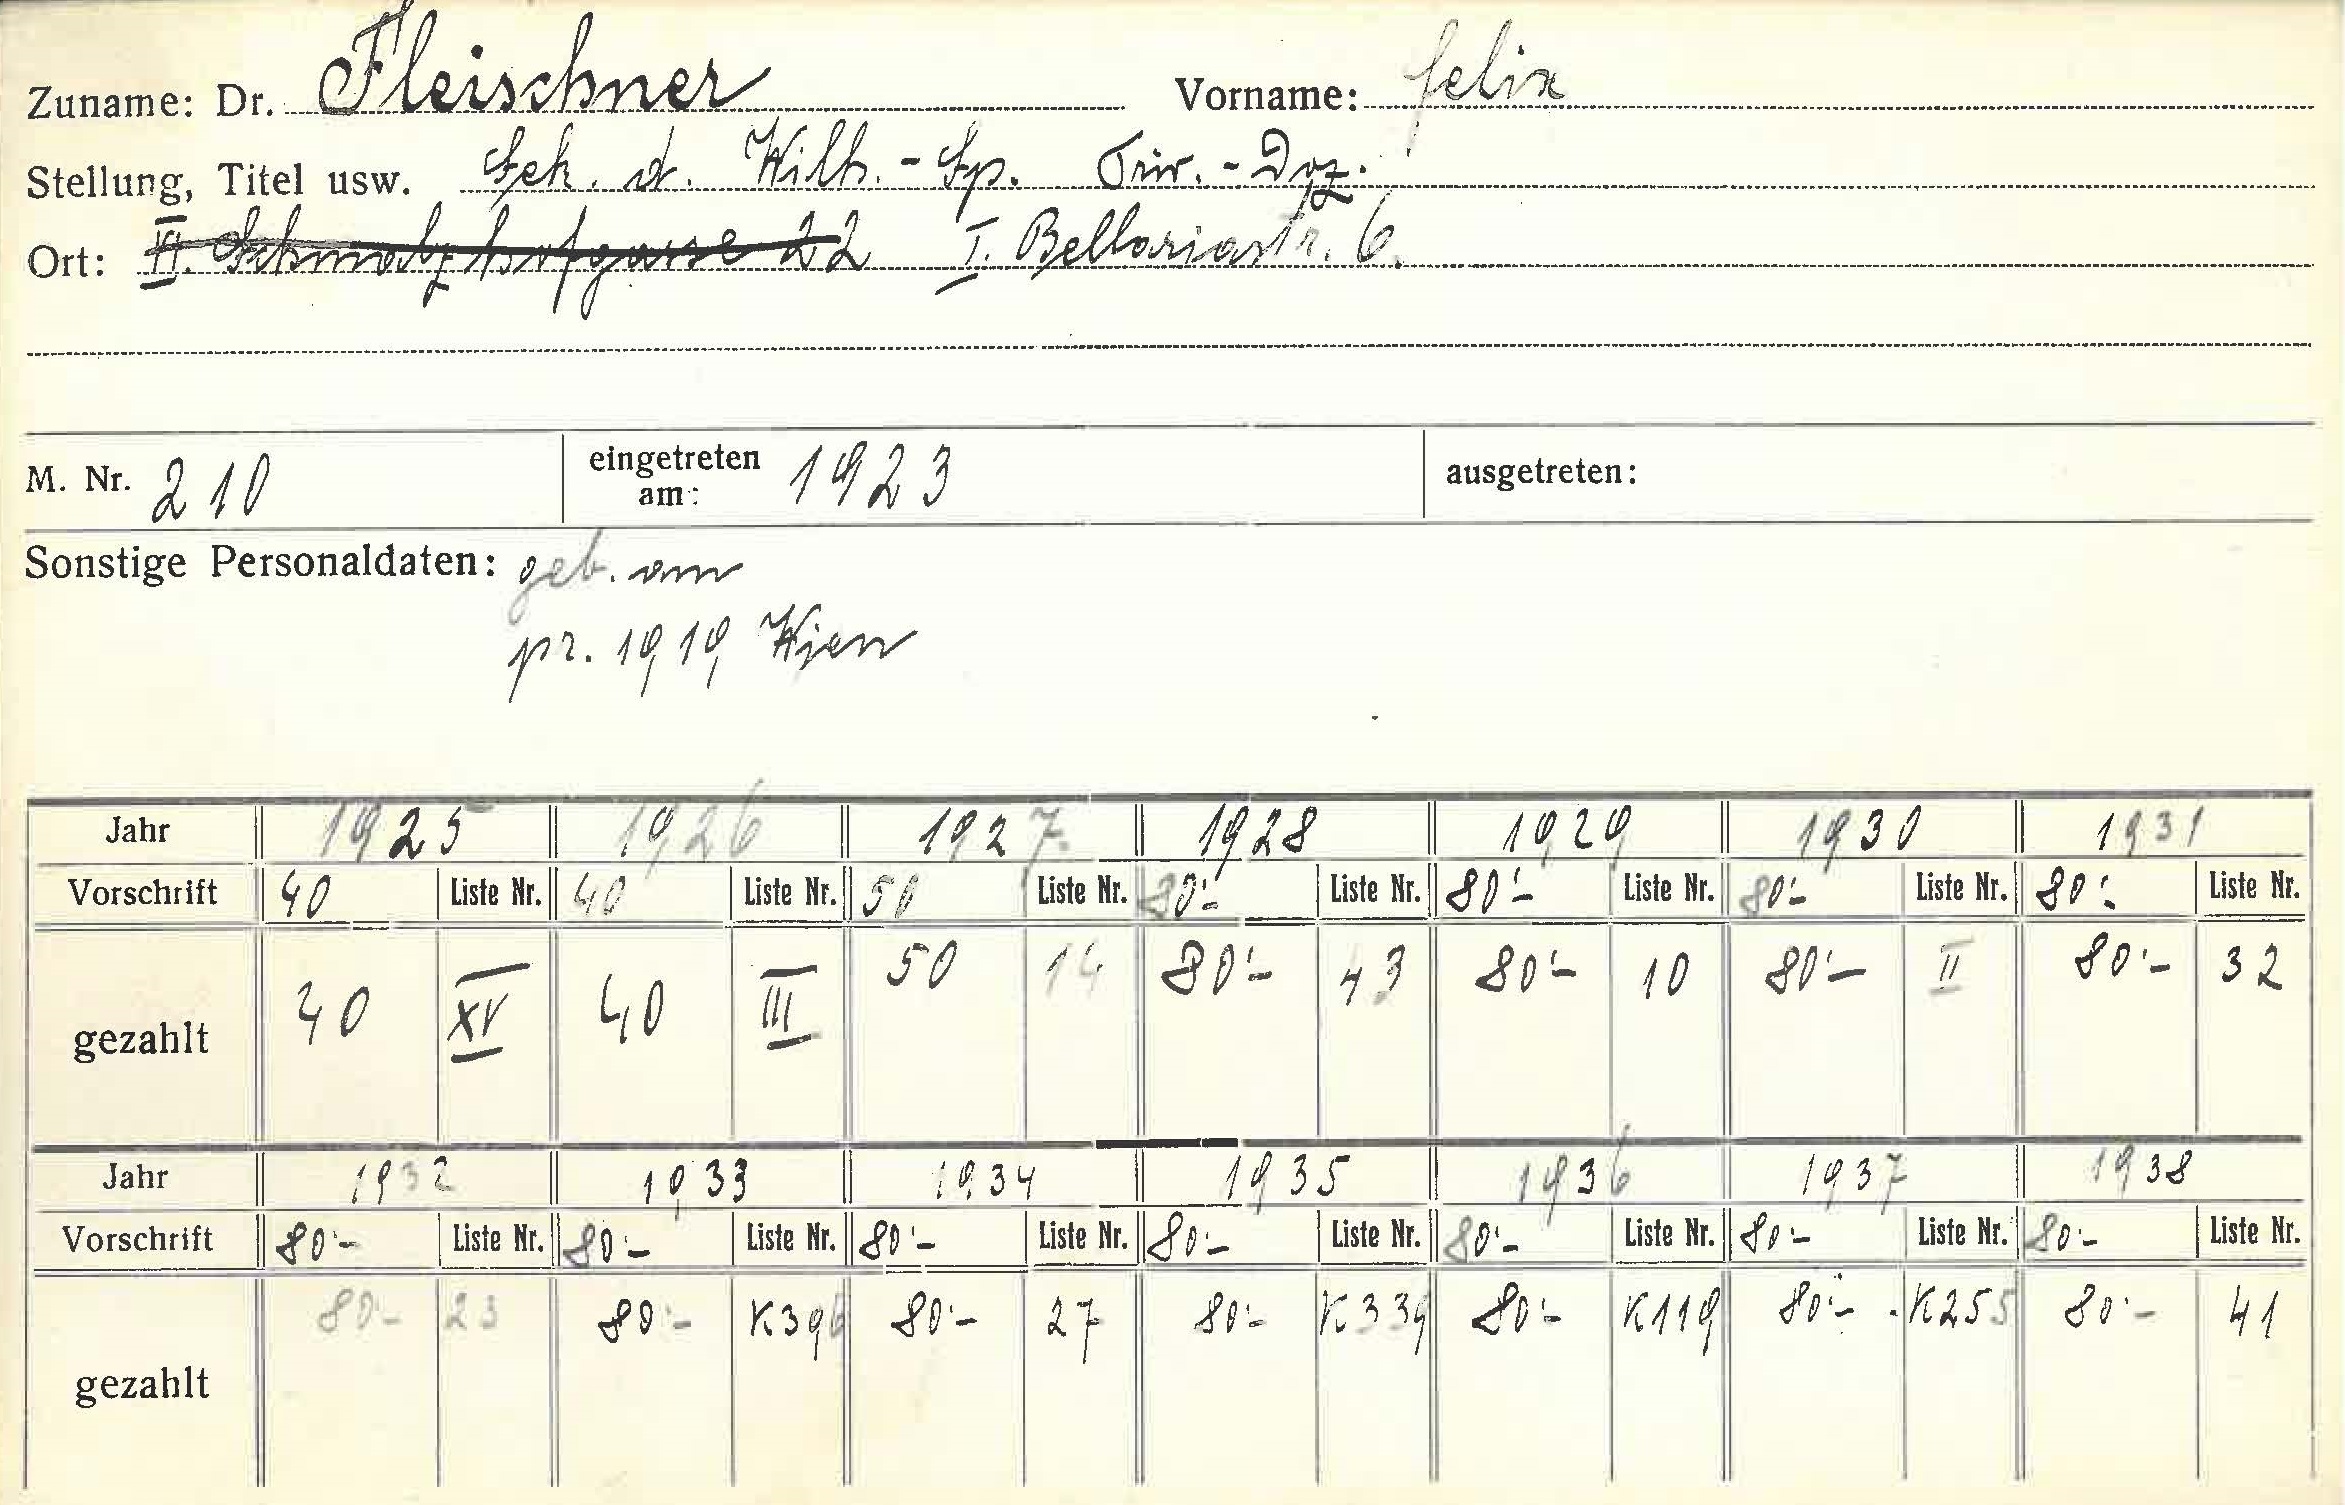 Zuname: Dr. Fleischner Vorname: Felix
Stellung, Titel usw. Sek. d. Wilh.-Sp. Priv.-Doz.
Ort: VI. Schmalzhofgasse 22 I. Bellariastr. 6.
M. Nr. 210 eingetreten am: 1923 ausgetreten:
Sonstige Personaldaten: geb. am
pr. 1919 Wien
Jahr 1925 1926 1927 1928 1929 1930 1931
Vorschrift 40 Liste Nr. 40 Liste Nr. 50 Liste Nr. 80'- Liste Nr. 80'- Liste Nr. 80'- Liste Nr. 80'- Liste Nr.
gezahlt 40 XV 40 III 50 14 80'- 43 80'- 10 80'- II 80'- 32
Jahr 1932 1933 1934 1935 1936 1937 1938
Vorschrift 80'- Liste Nr. 80'- Liste Nr. 80'- Liste Nr. 80'- Liste Nr. 80'- Liste Nr. 80'- Liste Nr. 80'- Liste Nr.
gezahlt 80'- 23 80'- K396 80'- 27 80'- K339 80'- K119 80'- K255 80'- 41